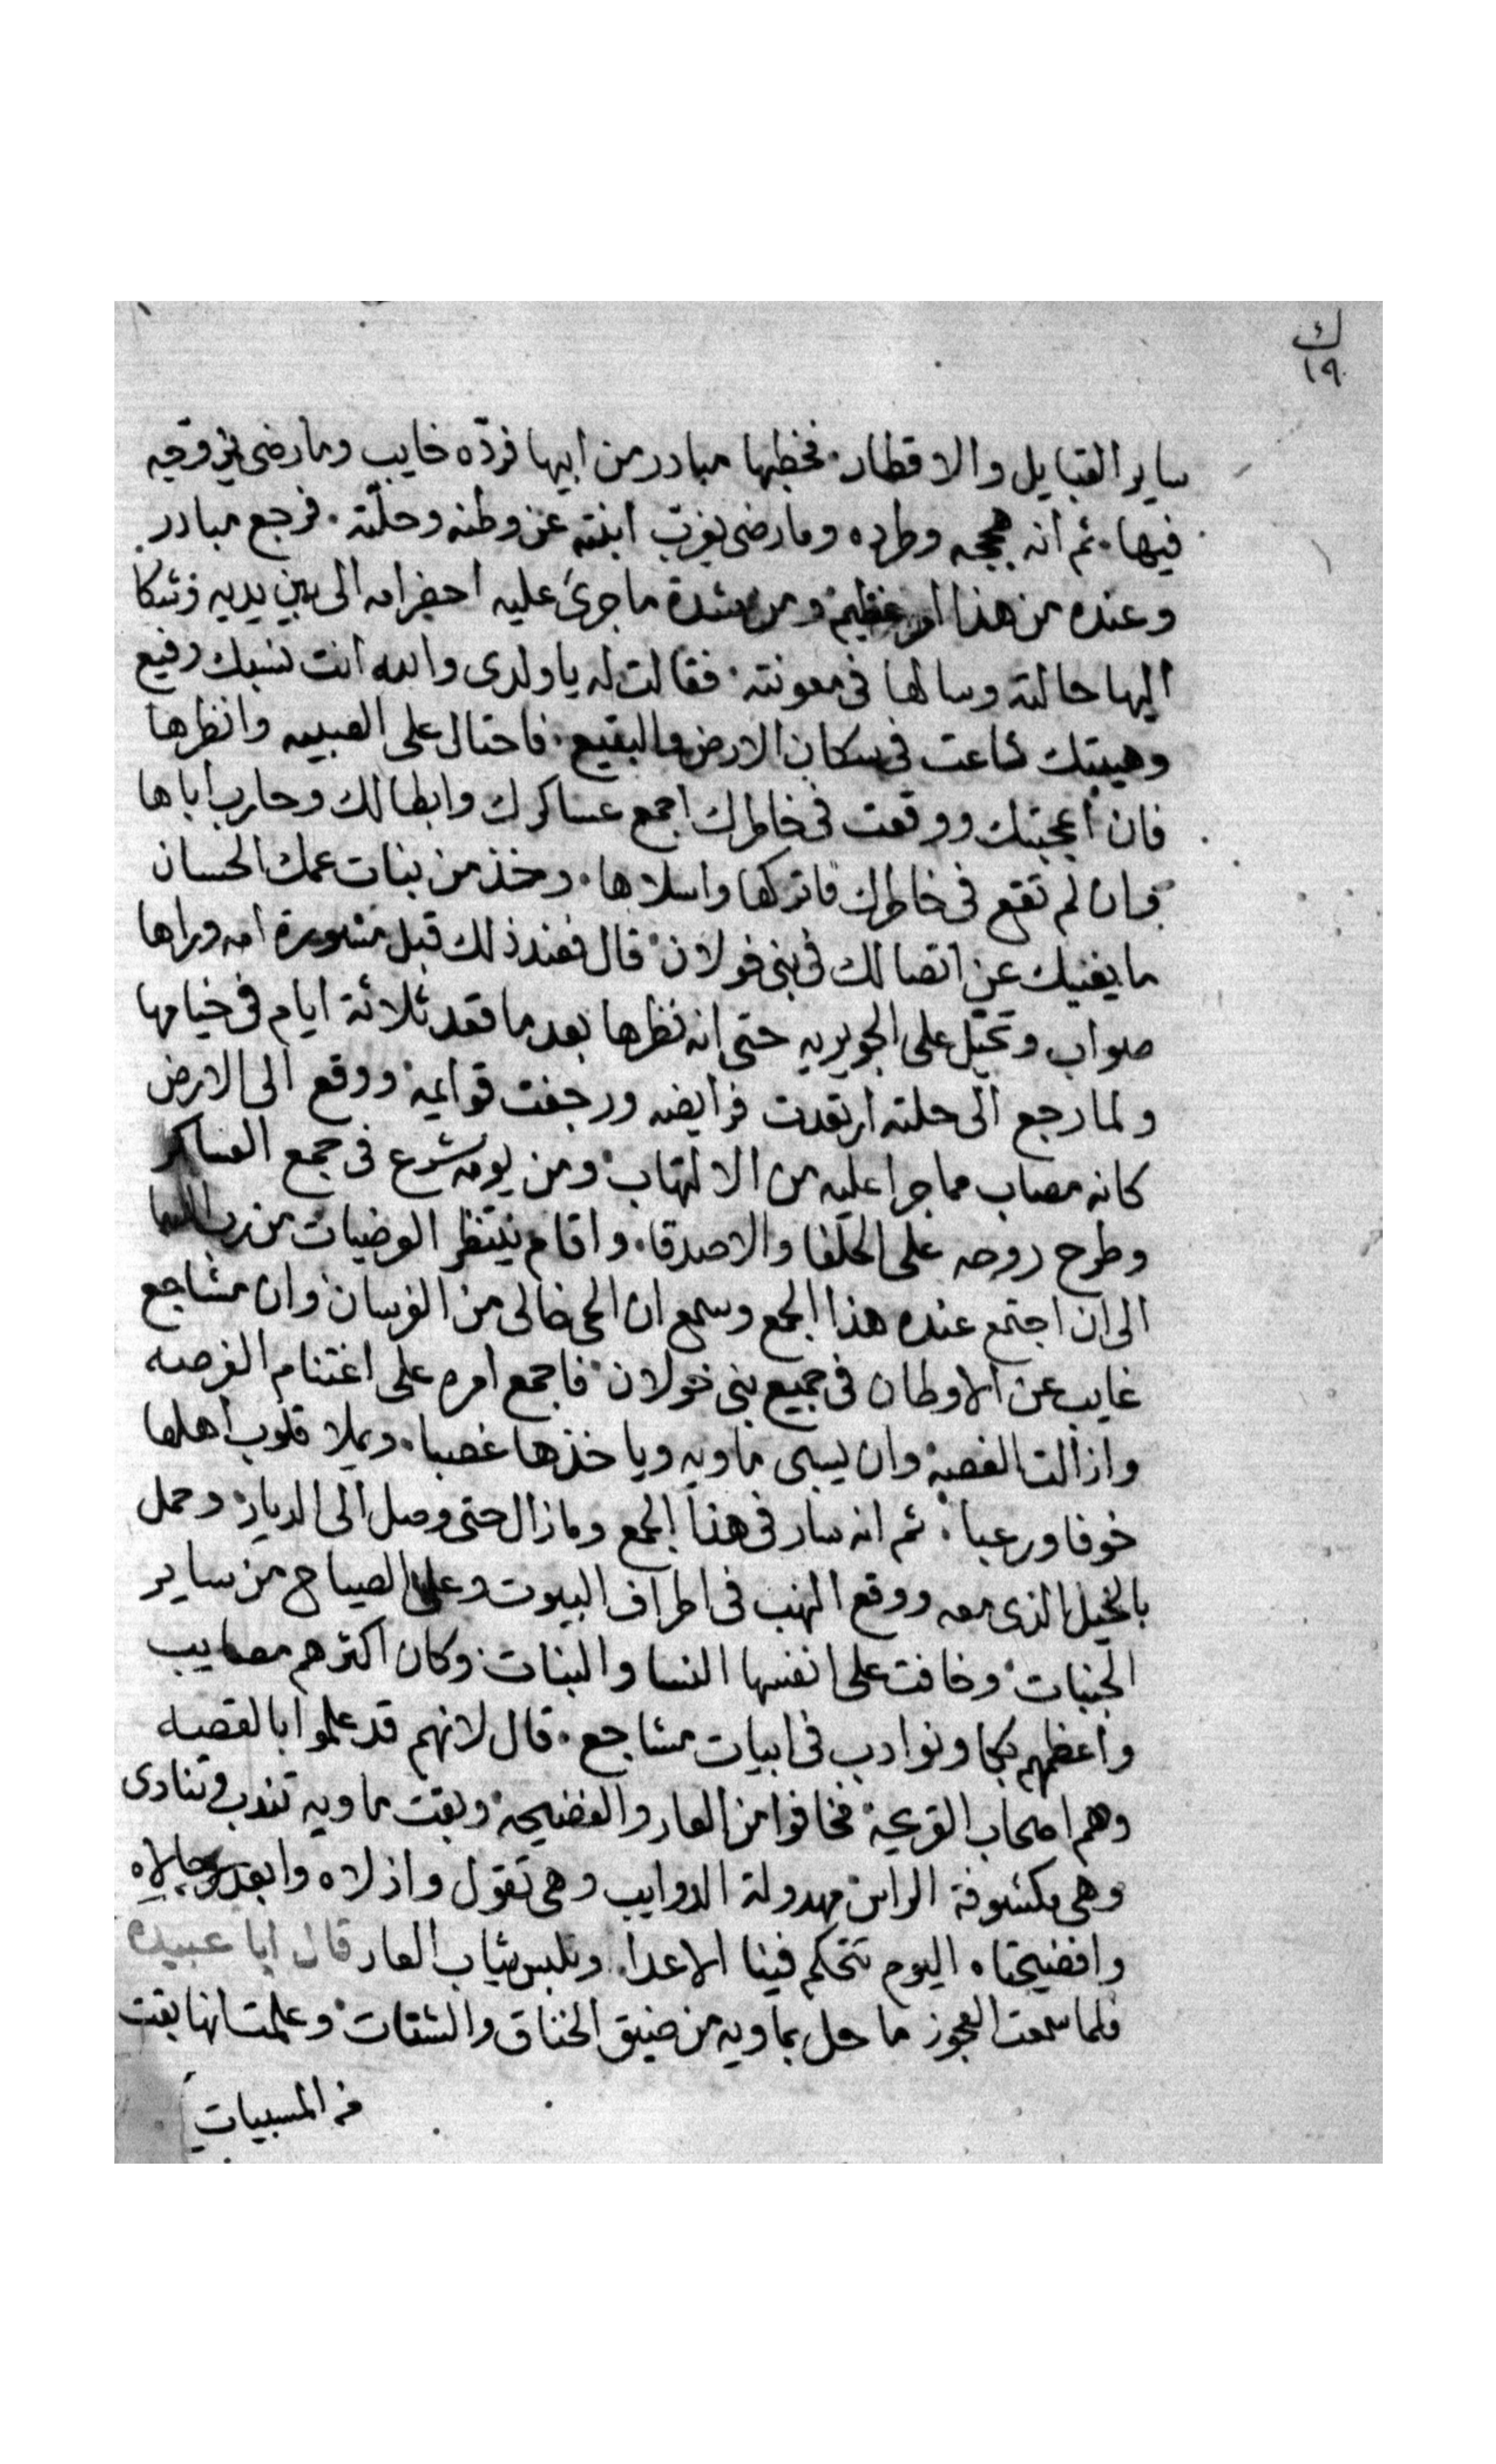 ك
١٩
ساير القبايل والاقطار. فخطبها مبادر من ابيها فردّه خايب وما رضى يزوّجه
فيها. ثم انه هججه وطرده وما رضى يغرب ابنته عن وطنه وحلّته. فرجع مبادر
وعنده من هذا امر عظيم ومن شدة ما جرى عليه احضر امه الى بين يديه وشكا
اليها حالته وسالها فى معونته. فقالت له يا ولدى والله انت نسبك رفيع
وهيبتك شاعت فى سكان الارض والبقيع. فاحتال على الصبيه وانظرها
فان اعجبتك ووقعت فى خاطرك اجمع عساكرك وابطالك وحارب اباها
وان لم تقع فى خاطرك فاتركها واسلاها. وخذ من بنات عمك الحسان
ما يغنيك عن اتصالك فى بنى خولان. قال فعند ذلك قبل مشورة امه وراها
صواب وتحيّل على الجويريه حتى انه نظرها بعد ما قعد ثلاثة ايام فى خيامها
ولما رجع الى حلته ارتعدت فرايضه ورجفت قوايمه ووقع الى الارض
كانه مصاب مما جرا عليه من الالتهاب. ومن يومه شرع فى جمع العساكر
وطرح روحه على الحلفا والاصدقا. واقام ينتظر الوصيات من رب السما
الى ان اجتمع عنده هذا الجمع وسمع ان الحى خالى من الفرسان وان مشاجع
غايب عن الاوطان فى جميع بنى خولان. فاجمع امره على اغتنام الفرصه
وازالت الغصة وان يسبى ماويه وياخذها غصبا. ويملا قلوب اهلها
خوفا ورعبا. ثم انه سار فى هذا الجمع وما زال حتى وصل الى الديار وحمل
بالخيل الذى معه ووقع النهب فى اطراف البيوت وعلى الصياح من ساير
الجنبات. وخافت على انفسها النسا والبنات. وكان اكثرهم مصايب
واعظمهم بكا ونوادب فى ابيات مشاجع. قال لانهم قد علموا بالقصه
وهم اصحاب القريحة فخافوا من العار والفضيحة وبقت ماويه تندب وتنادى
وهى مكشوفة الراس مهدولة الدوايب وهى تقول واذلاه وابعد رجالاه
وافضيحتاه اليوم تتحكم فينا الاعدا. ونلبس ثياب العار قال ابا عبيده
فلما سمعت العجوز ما حل بماويه من ضيق الخناق والشتات وعلمت انها بقت
من المسبيات